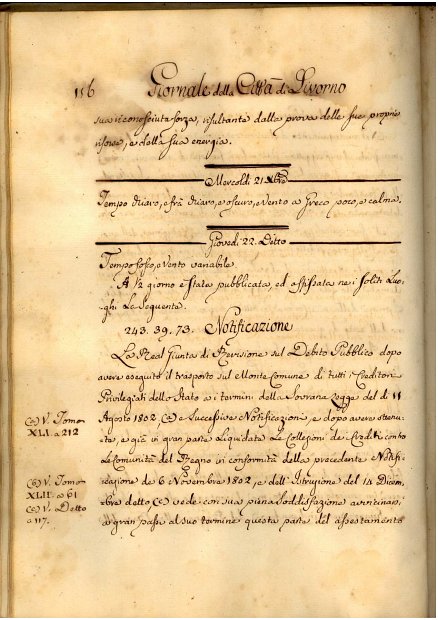 156 Giornale della Città di Livorno
sua riconosciuta forza, risultante dalla prova delle sue proprie
risorse, e della sua energia.
Mercoldì 21 Xbre
Tempo chiaro, e frà chiaro, e oscuro, e vento a Greco poco, e calma.
Giovedì 22. Detto
Tempo fosco, e vento variabile
A ½ giorno è stata pubblicata, ed affissata nei soliti Luo-
ghi La Seguente.
243. 39. 73. Notificazione
La Real Giunta di Revisione sul Debito Pubblico dopo
avere eseguito il trasporto sul Monte Comune di tutti i Creditori
Privilegiati dello Stato a i termini della Sovrana Legge del dì 11
Agosto 1802, e successive Notificazioni, e dopo avere
e già in gran parte Liquidata Le Collezioni dei Crediti contro
Le Comunità del Regno in conformità della precedente Notifi-
cazione de 6 Novembre 1802, e dell'Istruzione del 14 Dicem-
bre detto, vede con sua piena soddisfazione avvicinarsi
a gran passi al suo termine questa parte del assestamento
V. Tomo
XLI. a 212
V. Tomo
XLII. a 61
V. Detto
a 117.